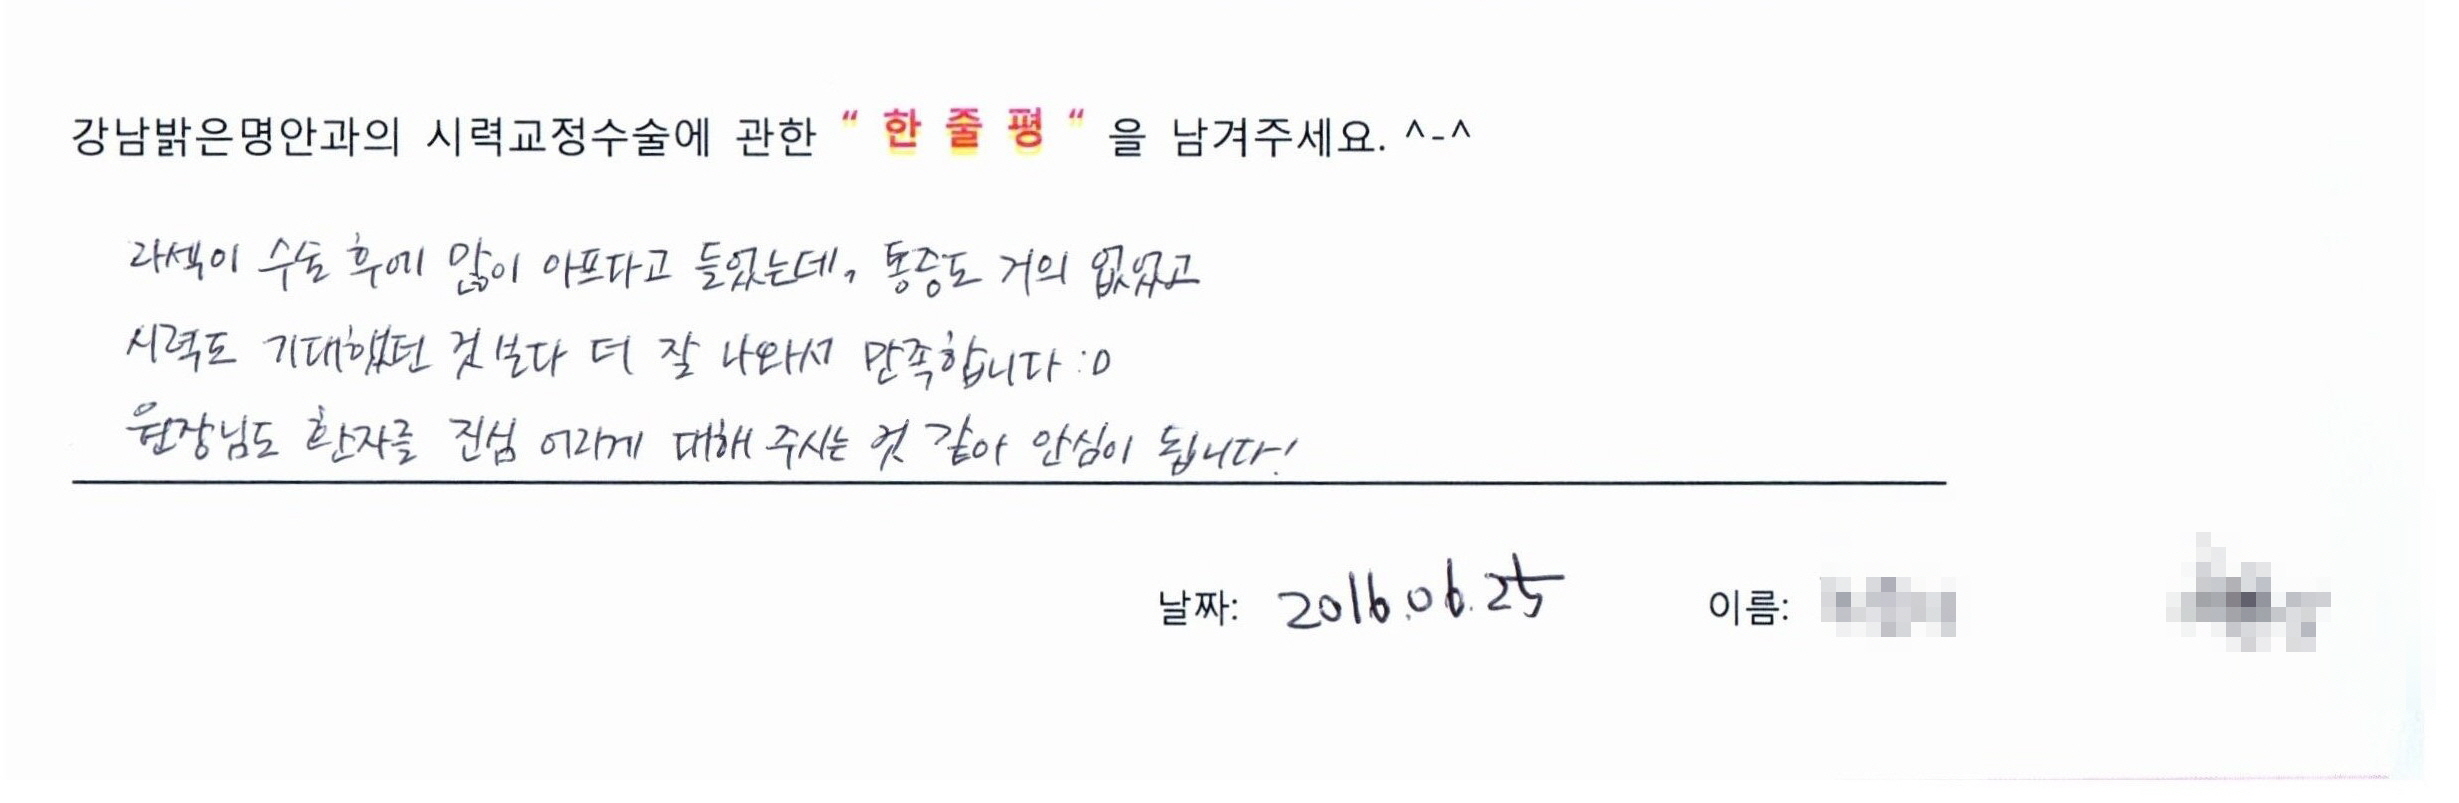 강남밝은명안과의 시력교정수술에 관한 “ 한 줄 평 “ 을 남겨주세요. ^-^
라섹이 수술 후에 많이 아프다고 들었는데, 통증도 거의 없었고
시력도 기대했던 것보다 더 잘 나와서 만족합니다 :D
원장님도 환자를 진심 어리게 대해 주시는 것 같아 안심이 됩니다!
날짜: 2016.06.25 이름: